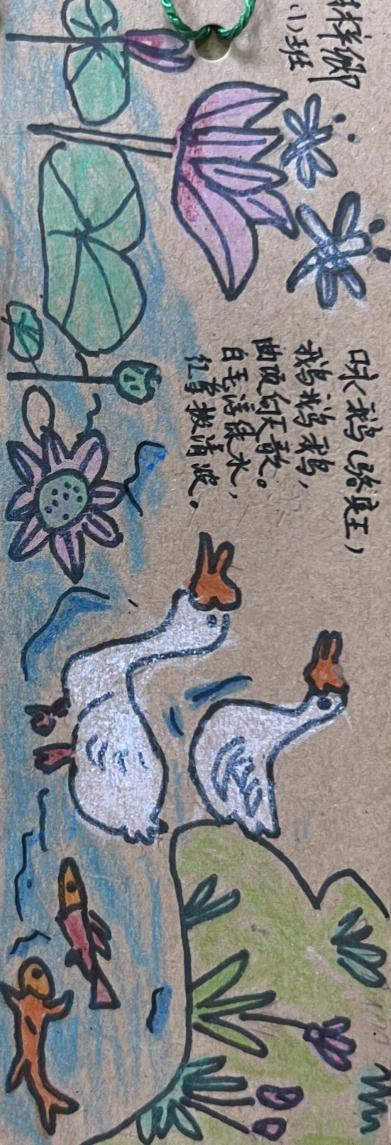 小班
咏鹅(骆宾王)
鹅鹅鹅,
曲项向天歌。
白毛浮绿水,
红掌拨清波。